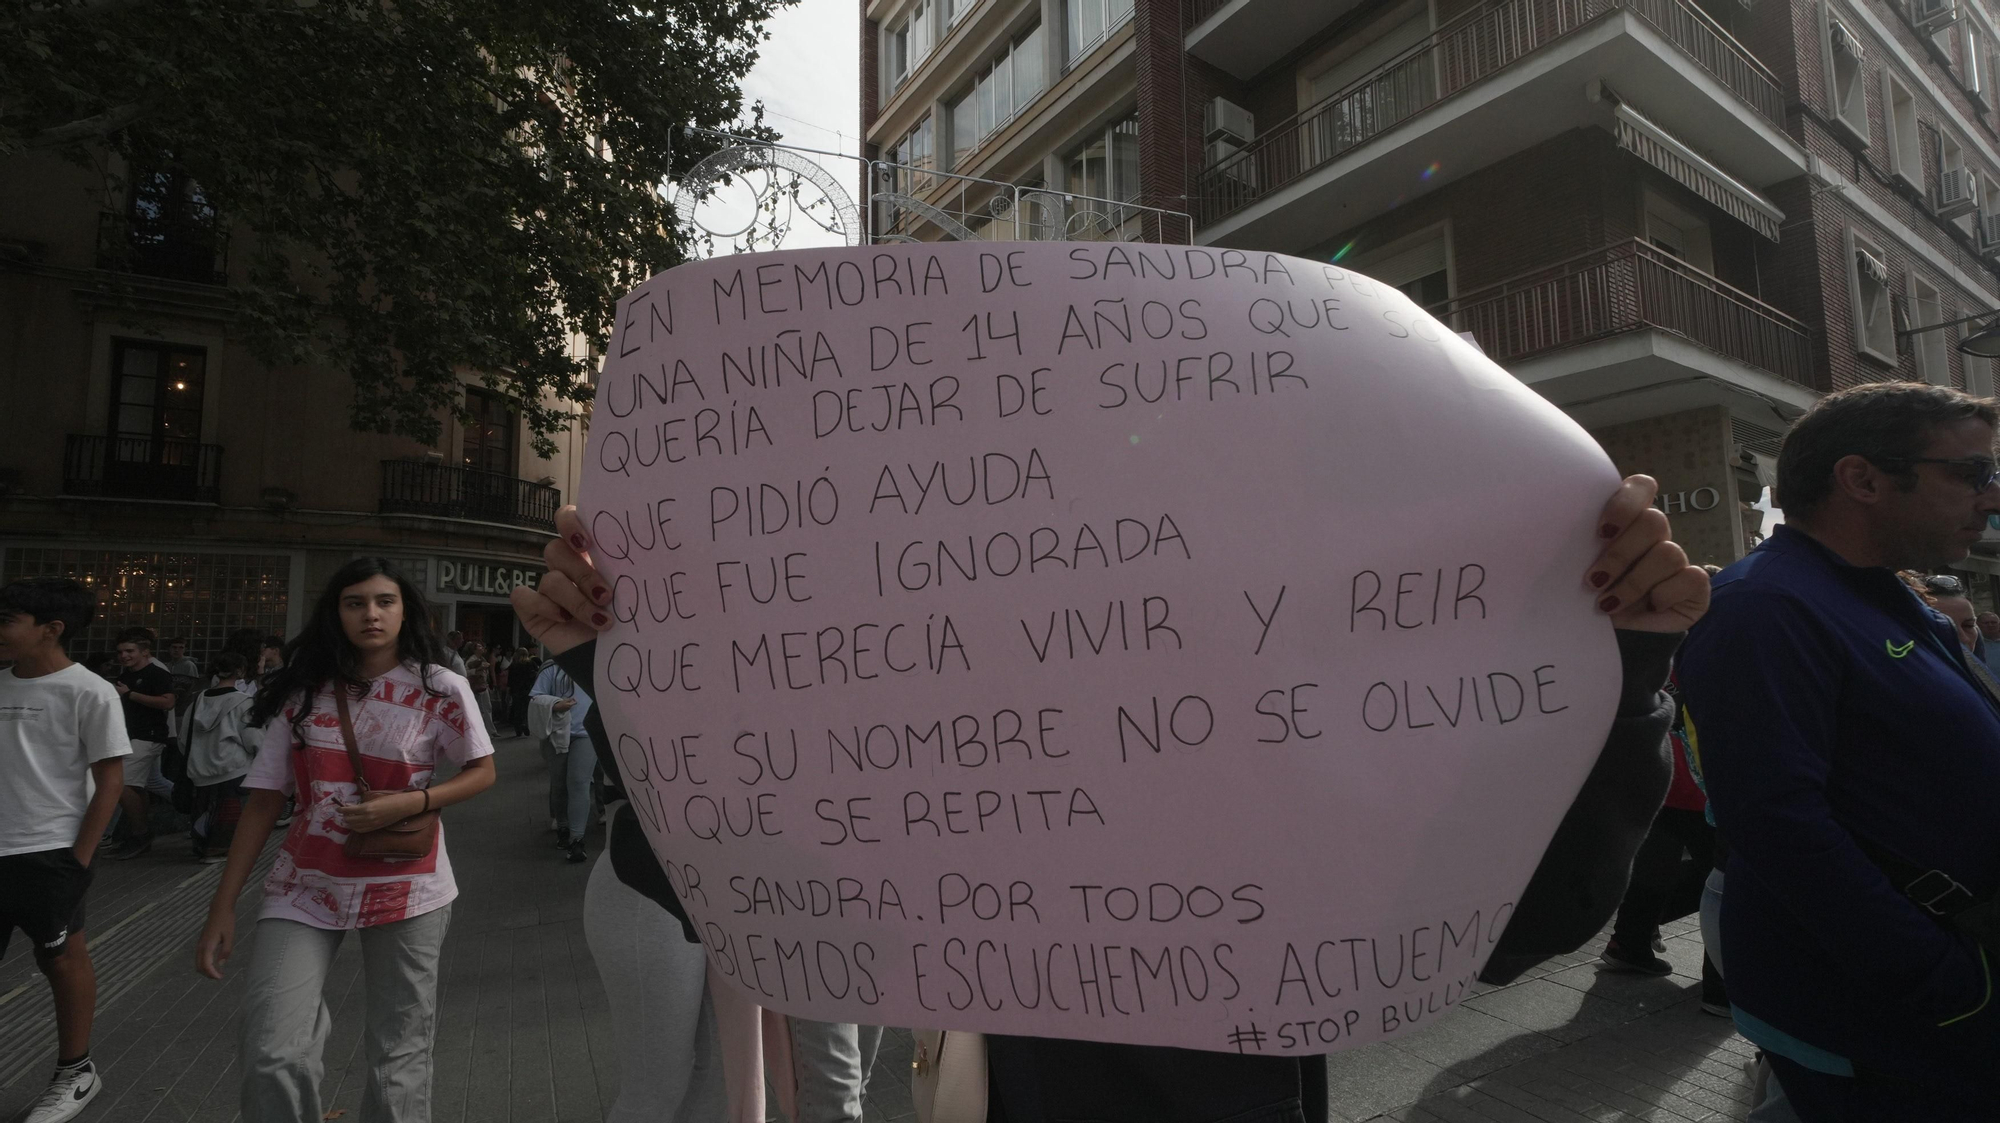 EN MEMORIA DE SANDRA PE
UNA NIÑA DE 14 AÑOS QUE SO
QUERÍA DEJAR DE SUFRIR
QUE PIDIÓ AYUDA
QUE FUE IGNORADA
QUE MERECÍA VIVIR Y REIR
QUE SU NOMBRE NO SE OLVIDE
NI QUE SE REPITA
OR SANDRA. POR TODOS
ABLEMOS. ESCUCHEMOS. ACTUEMO
#STOP BULLY
PULL&BE
HO